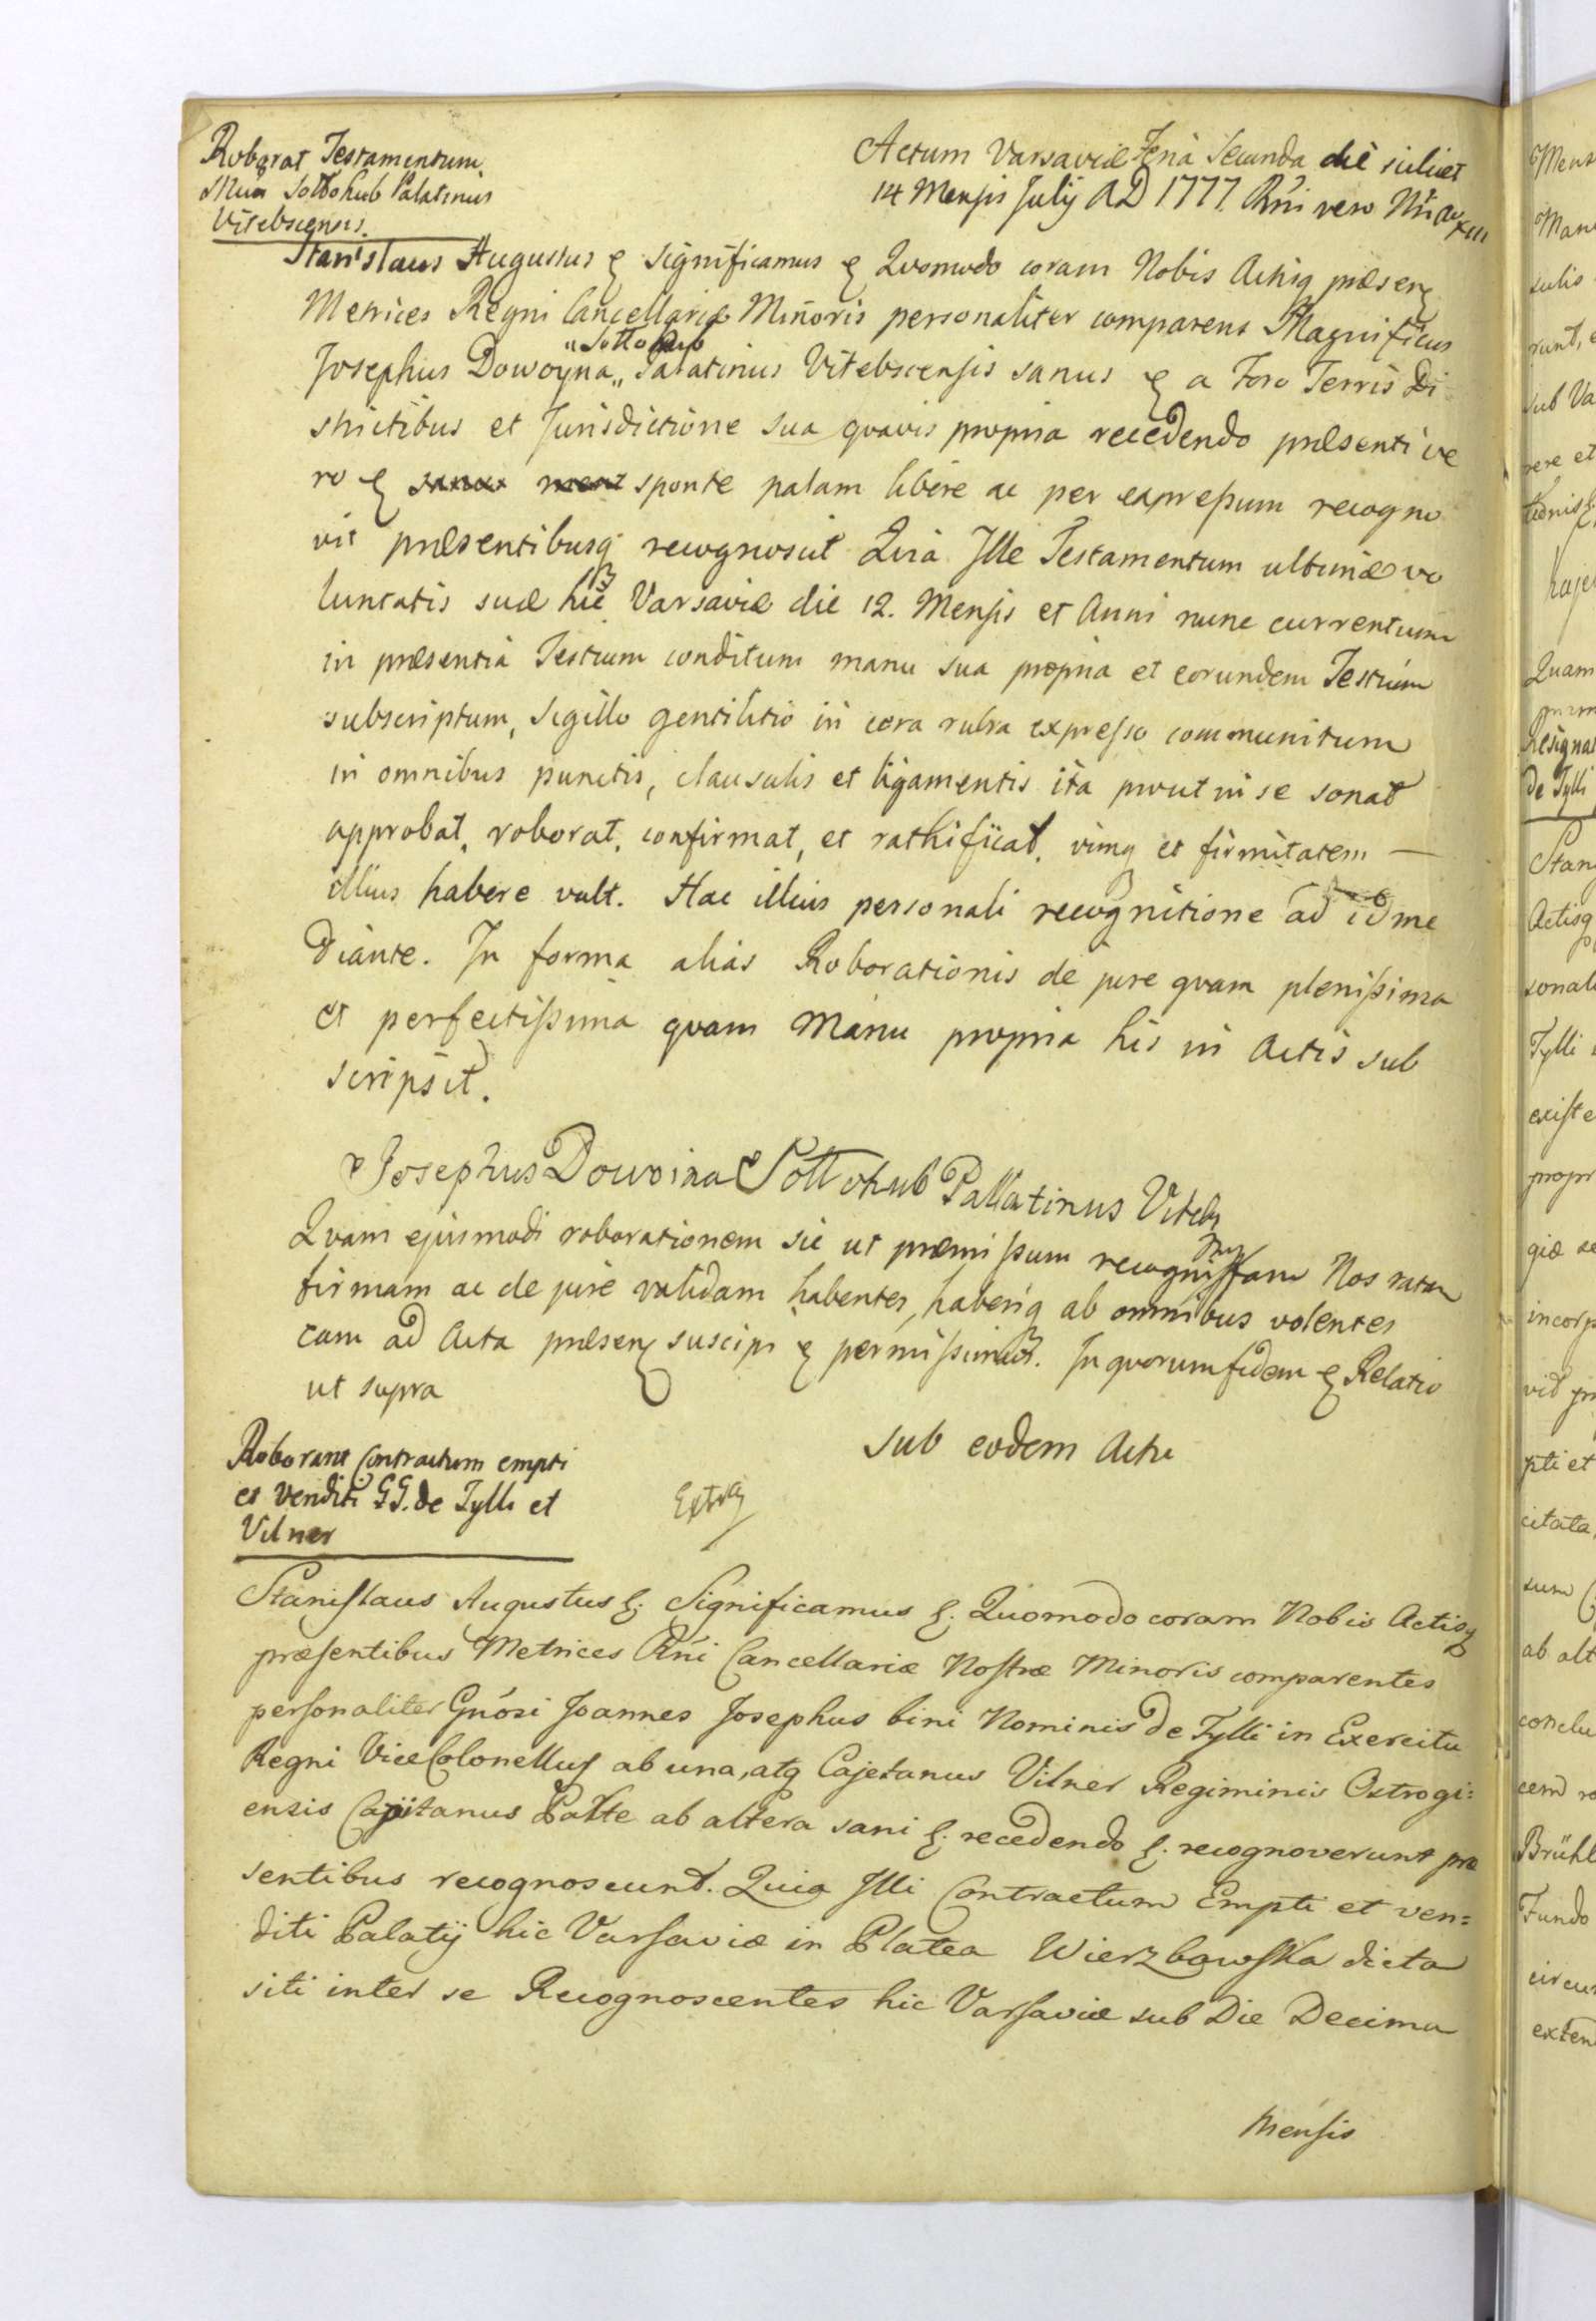 Roborat Testamentum
Sottohub Palatinus
Vitebscensis.
Actum Varsaviæ Feria Secunda die scilicet
14 Mensis Julij AD 1777. Rńi vero Nri
Stanislaus Augustus & Significamus & Quomodo coram Nobis Actisq præsen
Metrices Regni Cancellariæ Minoris personaliter comparens Magnificus
"Sottohub
Josephus Dowoyna„ Palatinus Vitebscensis sanus & a Foro Terris Di
strictibus et Jurisdictione sua quavis propria recedendo præsenti ve
ro & sponte palam libere ac per expressum recogno
vit præsentibusq recognoscit Quia Ille Testamentum ultimæ vo
luntatis suæ hic Varsaviæ die 12. Mensis et Anni nunc currentium
in præsentia Testium conditum manu sua propria et eorundem Testium
subscriptum, Sigillo gentilitio in cera rubra expresso communitum
in omnibus punctis, clausulis et ligamentis ita prout in se sonat
approbat, roborat, confirmat, et rathificat, vimq et firmitatem —
illius habere vult. Hac illius personali recognitione ad id me
diante. In forma alias Roborationis de jure quam plenissima
et perfectissima quam Manu propria his in Actis sub
scripsit.
Josephus Dowoina Sottohub Pallatinus Viteb
Quam ejusmodi roborationem sic ut præmissum recognitam Nos ratam
firmam ac de jure validam habentes, haberiq ab omnibus volentes
eam ad Acta præsen suscipi & permissimus. In quorum fidem & Relatio
ut supra
Sub eodem Actu
Roborant Contractum empti
et venditi GG. de Tylli et
Vilner
Stanislaus Augustus &. Significamus &. Quomodo coram Nobis Actisq
præsentibus Metrices Rńi Cancellariæ Nostræ Minoris comparentes
personaliter Gnósi Joannes Josephus bini Nominis de Tylli in Exercitu
Regni Vice Colonellus ab una, atq Cajetanus Vilner Regiminis Ostrogi:
ensis Capitanus Parte ab altera sani &. recedendo &. recognoverunt præ
sentibus recognoscunt. Quia Illi Contractum Empti et ven=
diti Palatij hic Varsaviæ in Platea Wierzbowska dicta
siti inter se Recognoscentes hic Varsaviæ sub Die Decima
Mensis